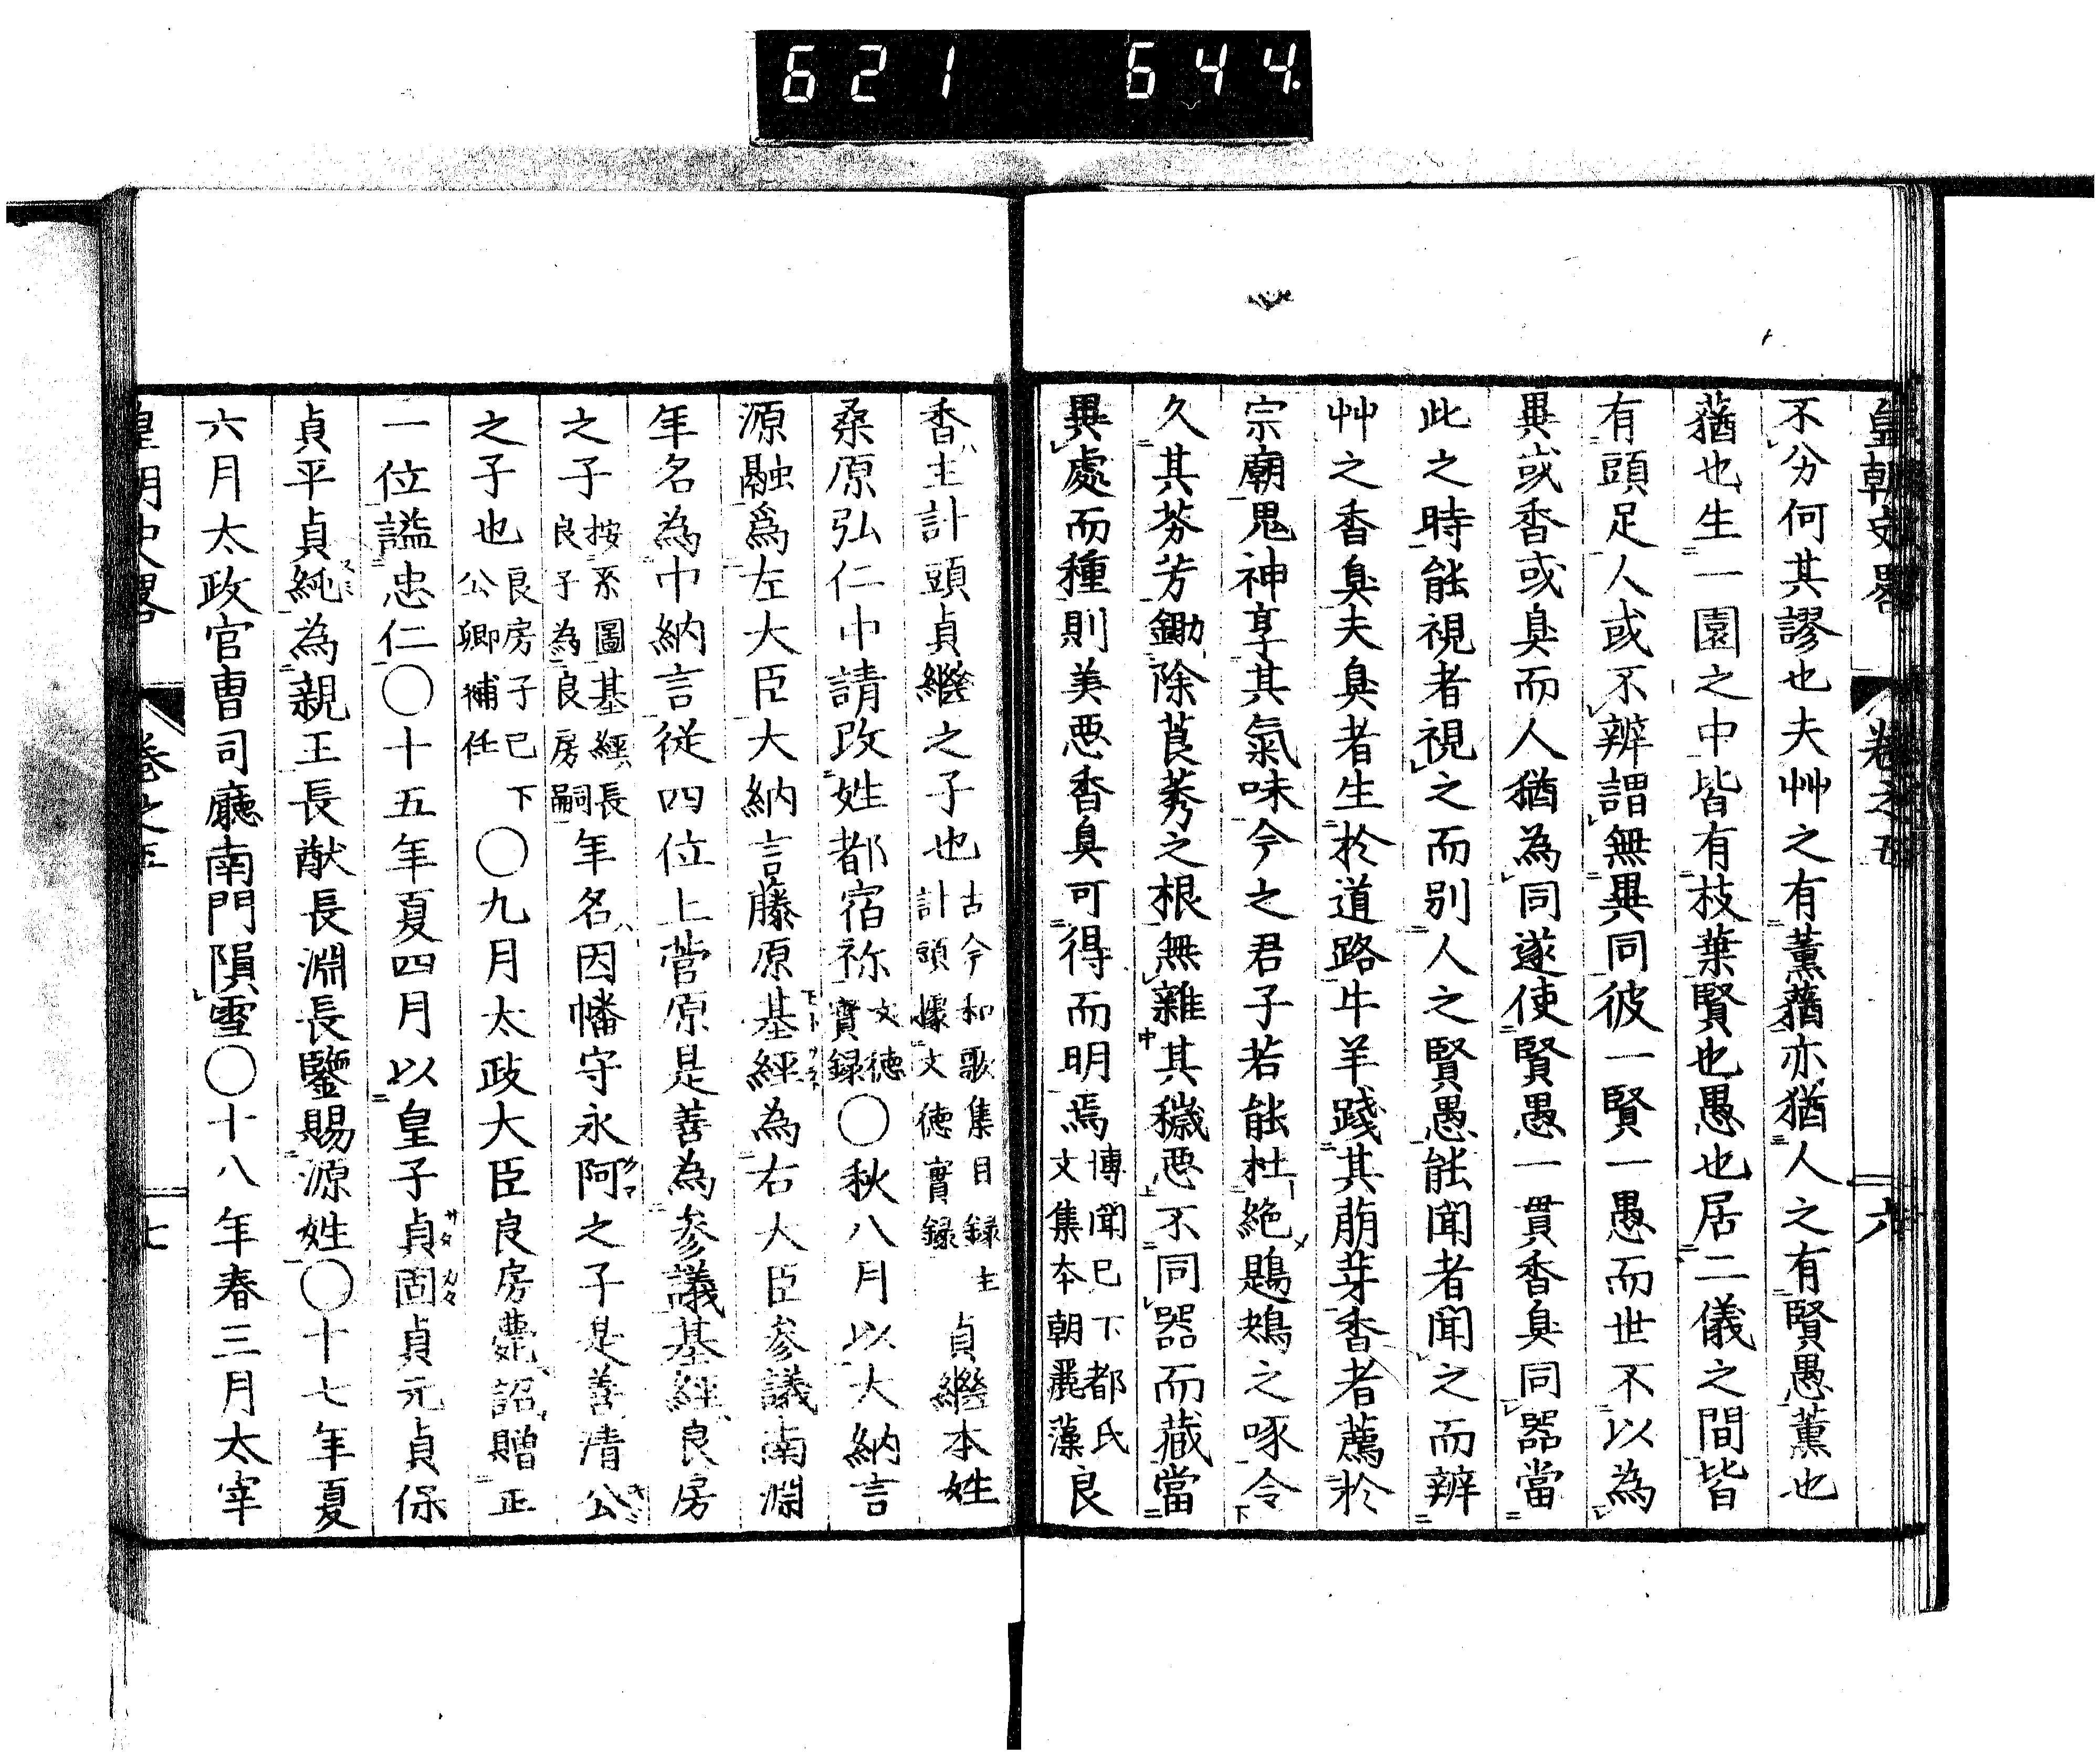 621 644.
皇朝史畧 卷之五 六
不分何其謬也夫艸之有薰蕕亦猶人之有賢愚薰也
蕕也生一園之中皆有枝葉賢也愚也居二儀之間皆
有頭足人或不辨謂無異同彼一賢一愚而世不以為
異或香或臭而人猶為同遂使賢愚一貫香臭同器當
此之時能視者視之而别人之賢愚能聞者聞之而辨
艸之香臭夫臭者生於道路牛羊踐其萠芽香者薦於
宗廟鬼神享其氣味今之君子若能杜絶鶗鴂之啄令
久其芬芳鋤除莨莠之根無雜其穢惡不同器而藏當
異處而種則美惡香臭可得而明焉博聞已下都氏文集本朝麗藻良
香主計頭貞繼之子也古今和歌集目録主計頭據文徳實録貞繼本姓
桑原弘仁中請改姓都宿祢文徳實録○秋八月以大納言
源融爲左大臣大納言藤原基經為右大臣参議南淵
年名為中納言從四位上菅原是善為参議基經良房
之子按系圖基經長良子為良房嗣年名因幡守永河之子是善清公
之子也良房子已下公卿補任○九月太政大臣良房薨詔贈正
一位謚忠仁○十五年夏四月以皇子貞固貞元貞保
貞平貞純為親王長猷長淵長鑒賜源姓○十七年夏
六月太政官曹司廳南門隕雪○十八年春三月太宰
皇朝史畧 卷之五 七